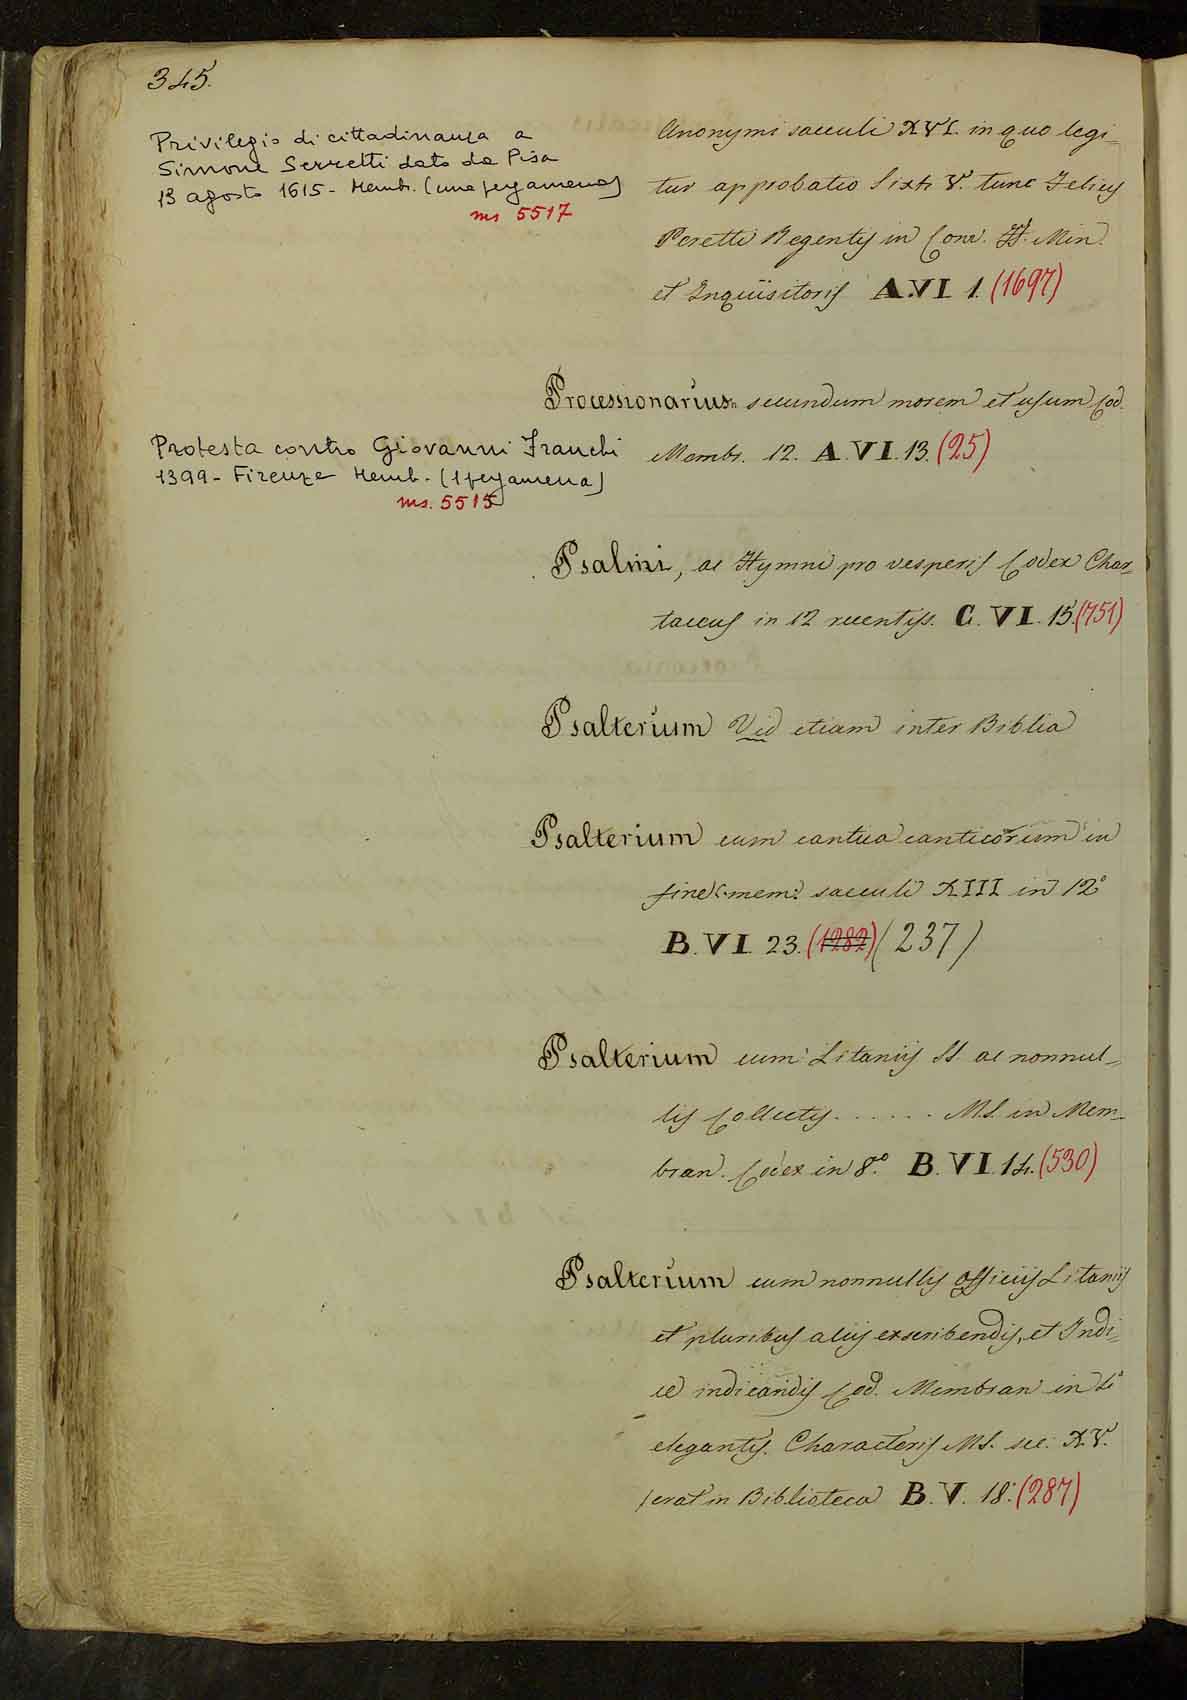 345.
Privilegio di cittadinanza a
Simone Serretti dato da Pisa
13 agosto 1615 - Memb. (una pergamena)
ms 5517
Anonymi saeculi XVI. in quo legi-
tur approbatio Sixti V. tunc Felicis
Peretti Regentis in Conv. FF. Min.
et Inquisitoris A.VI 1. (1697)
Processionarius secundum morem et usum Cod.
Membr. 12. A.VI.13. (25)
Protesta contro Giovanni Franchi
1399 - Firenze Memb. (1 pergamena)
ms. 5515
Psalmi, ac Hymni pro vesperis Codex Char-
taceus in 12 recentiss. G.VI.15. (751)
Psalterium Vid etiam inter Biblia
Psalterium cum cantica canticorum in
fine C. mem: saeculi XIII in 12.°
B.VI.23. (1282) (237)
Psalterium cum Litaniis SS. ac nonnul-
lis Collectis . . . . . . MS. in Mem-
bran. Codex in 8.° B.VI.14. (530)
Psalterium cum nonnullis officiis Litaniis
et pluribus aliis exscribendis, et Indi-
ce indicandis Cod. Membran in 4°
elegantis. Characteris MS. sec. XV.
erat in Biblioteca B.V. 18. (287)